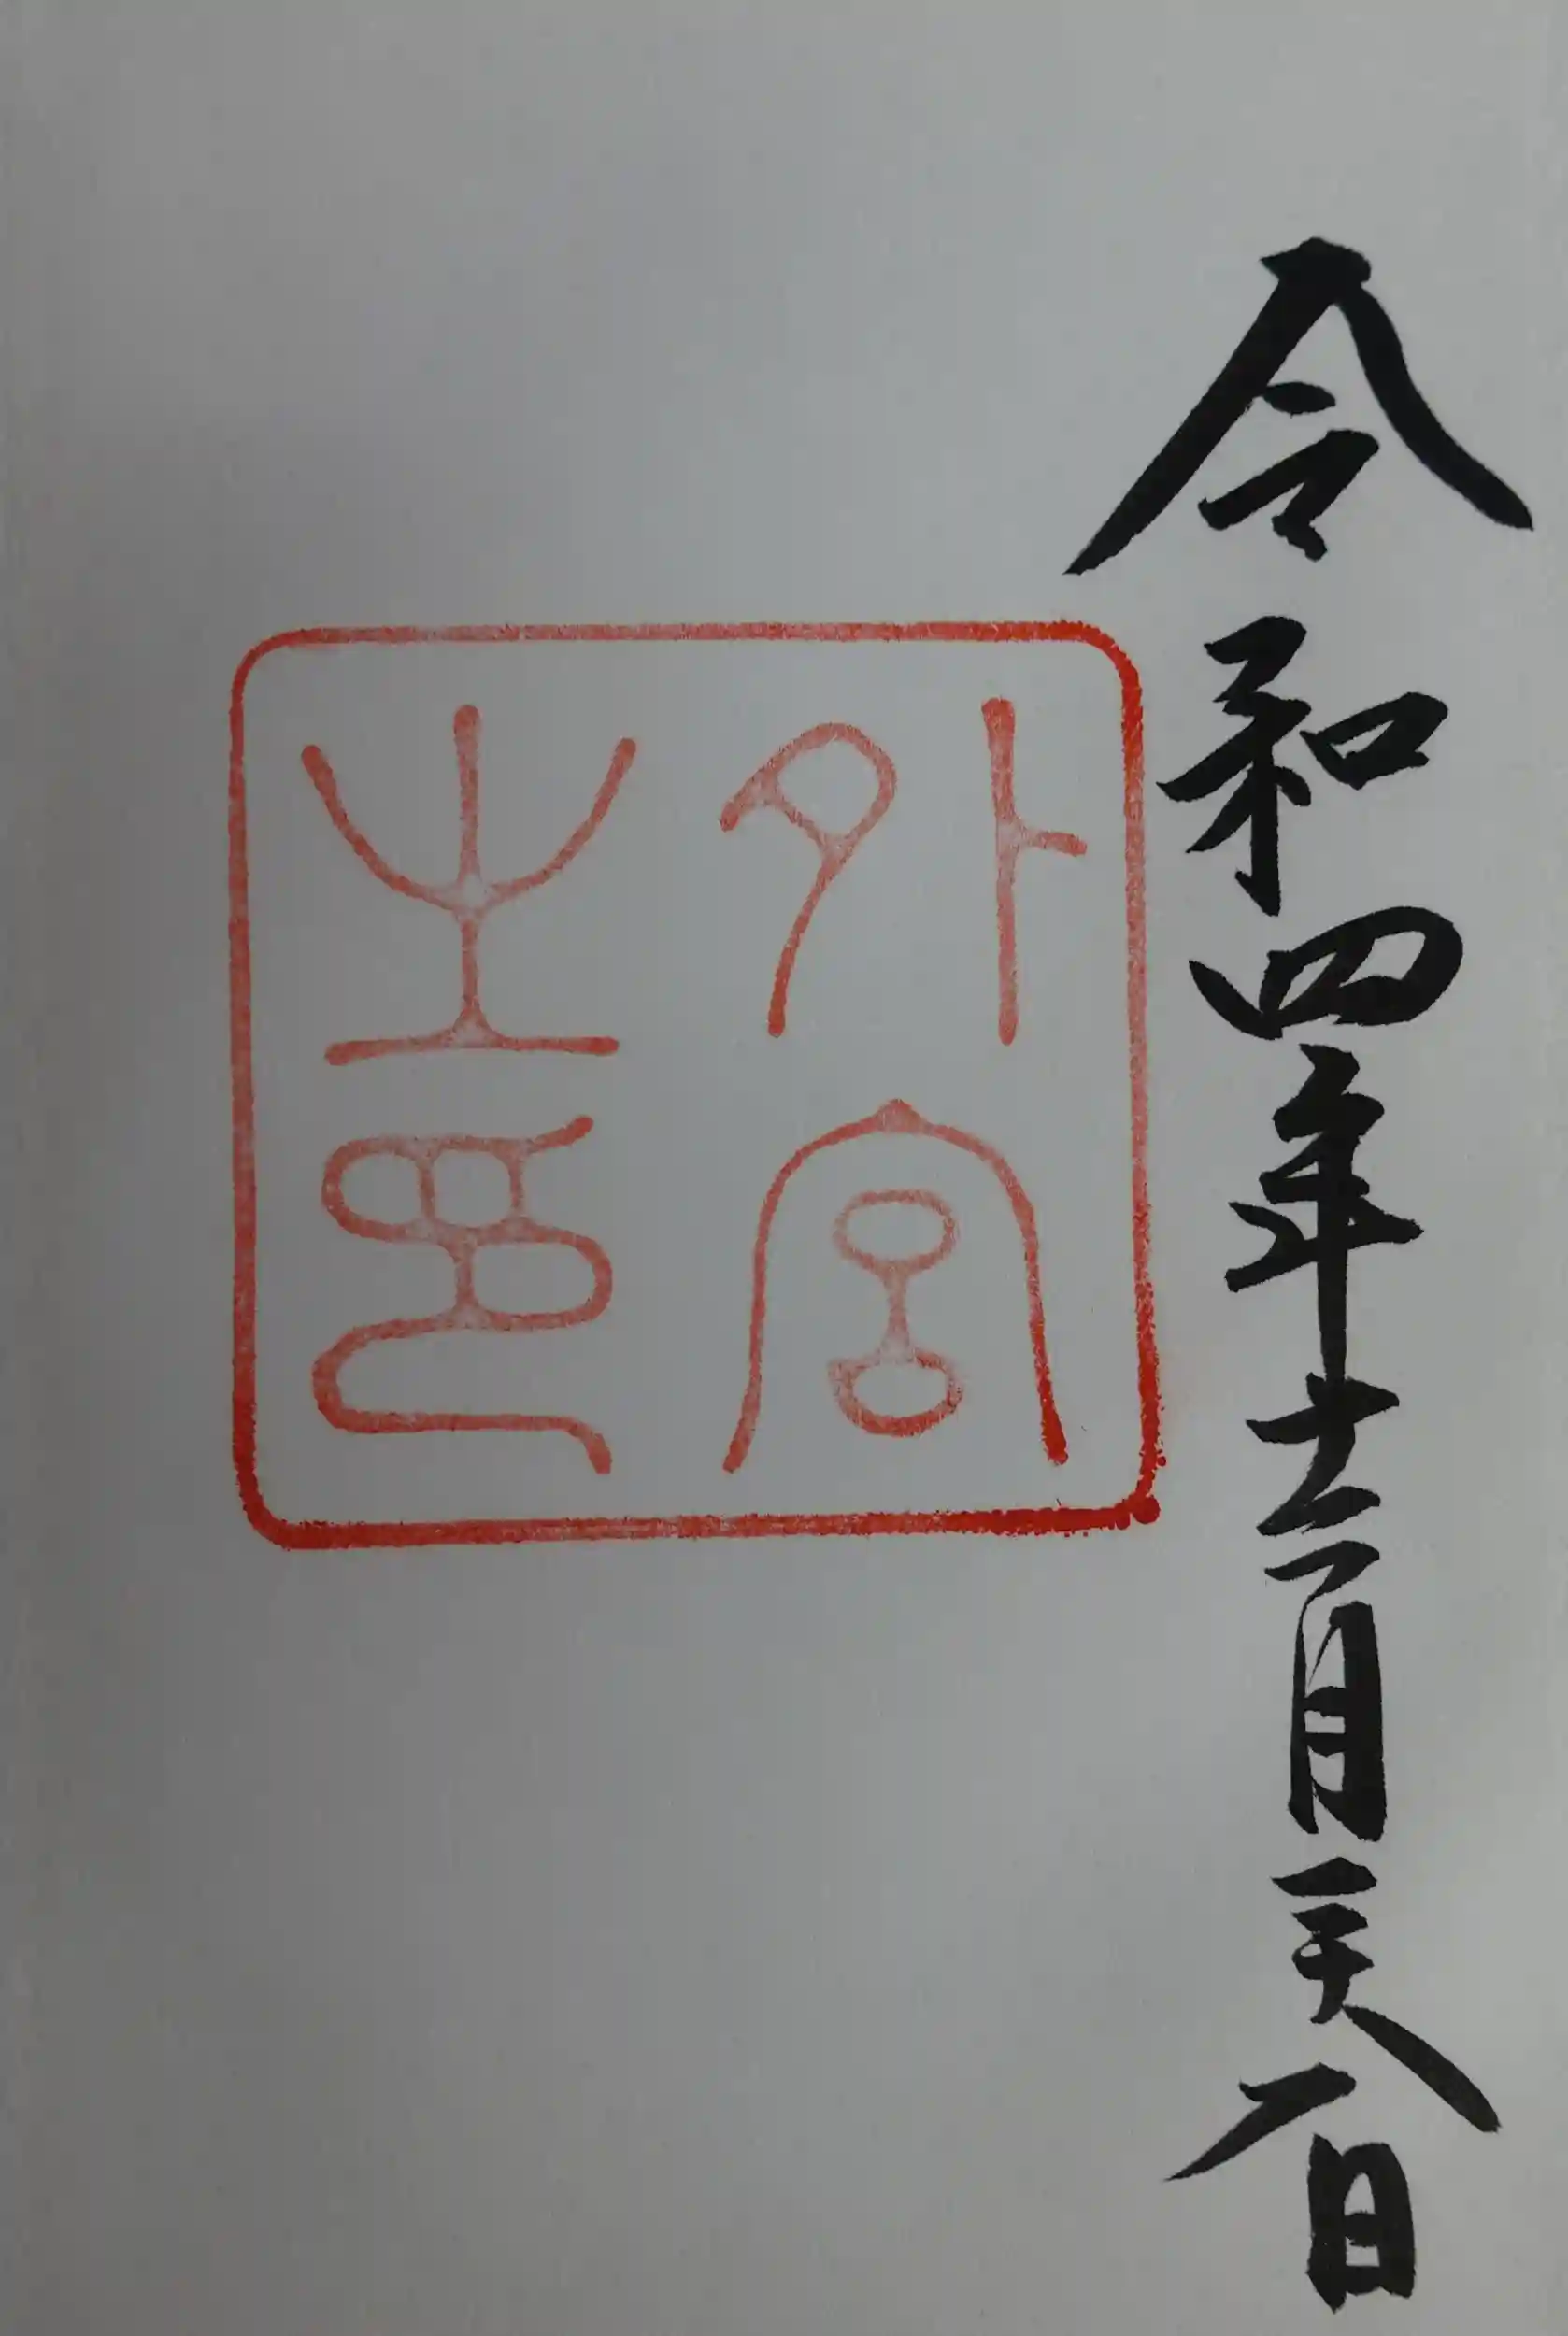 令和四年十二月二十八日
外宮
之印